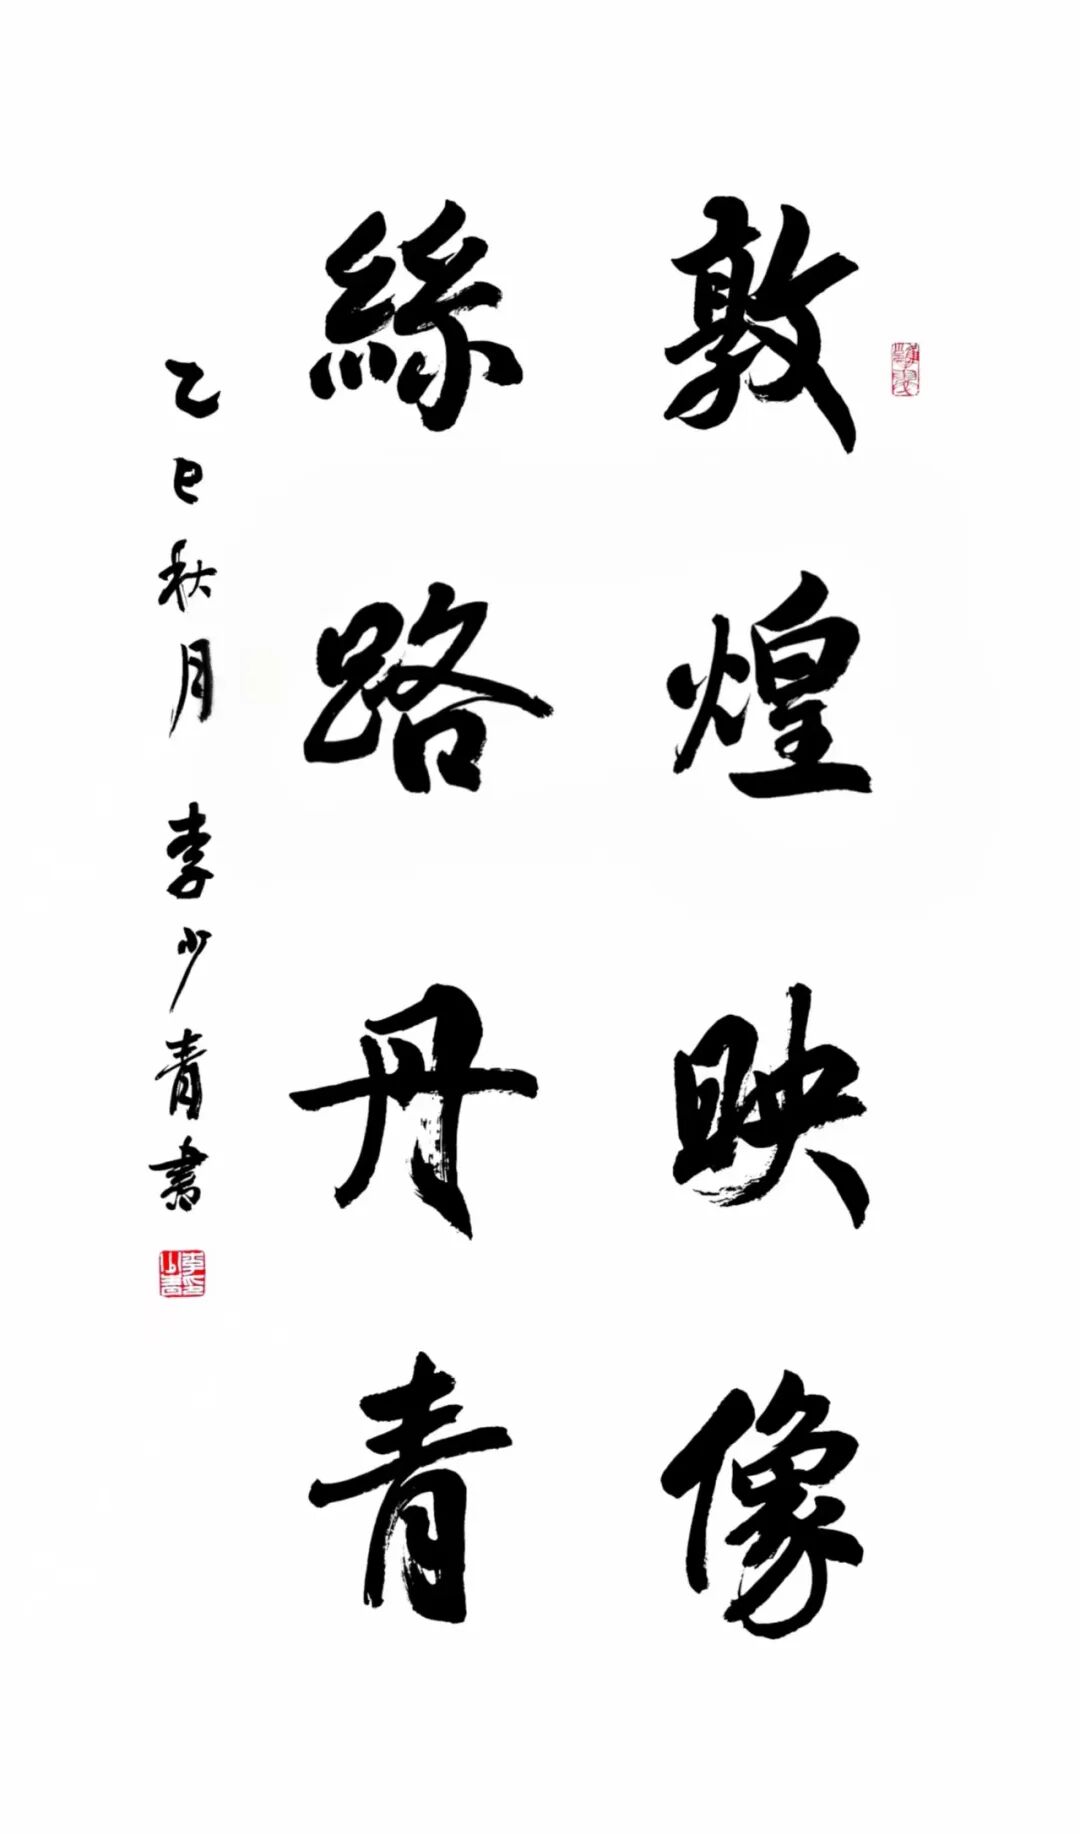 敦煌映像
絲路丹青
乙巳秋月 李少青書